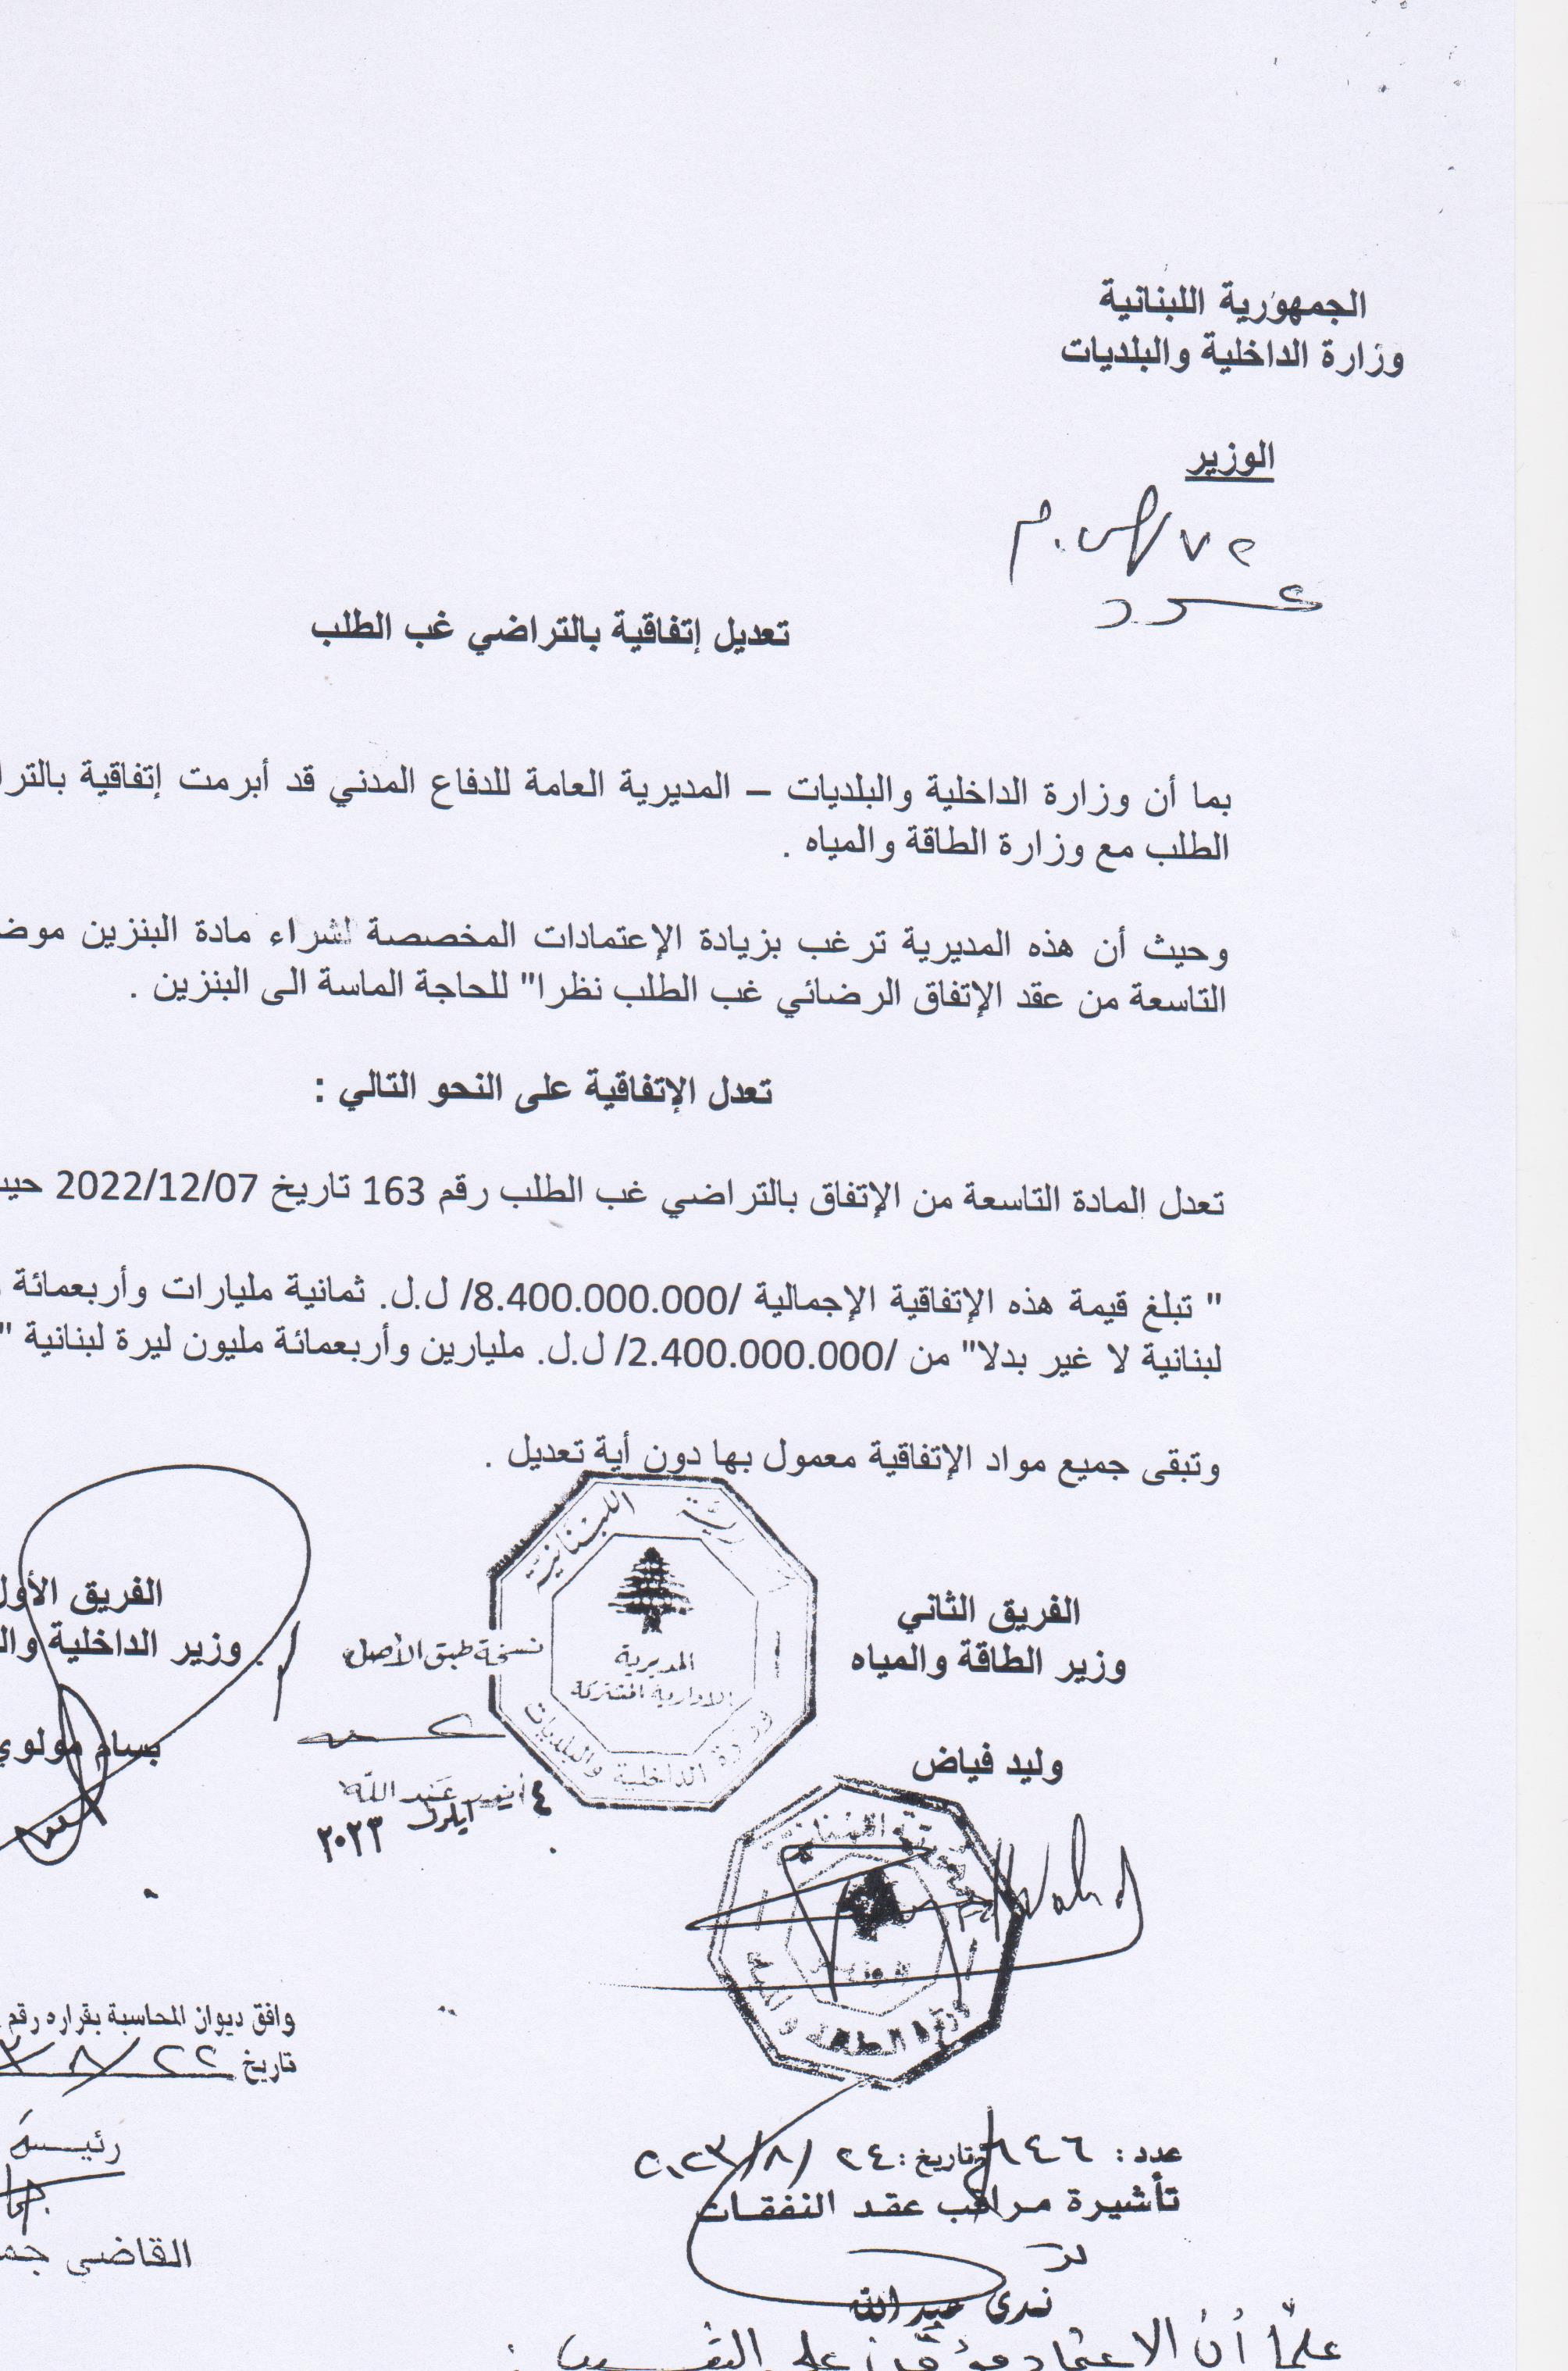 الجمهورية اللبنانية
وزارة الداخلية والبلديات
الوزير
٧٢/ص.م
تعديل إتفاقية بالتراضي غب الطلب
بما أن وزارة الداخلية والبلديات – المديرية العامة للدفاع المدني قد أبرمت إتفاقية بالترا
الطلب مع وزارة الطاقة والمياه .
وحيث أن هذه المديرية ترغب بزيادة الإعتمادات المخصصة لشراء مادة البنزين موض
التاسعة من عقد الإتفاق الرضائي غب الطلب نظرا" للحاجة الماسة الى البنزين .
تعدل الإتفاقية على النحو التالي :
تعدل المادة التاسعة من الإتفاق بالتراضي غب الطلب رقم 163 تاريخ 2022/12/07 حيث
" تبلغ قيمة هذه الإتفاقية الإجمالية /8.400.000.000/ ل.ل. ثمانية مليارات وأربعمائة
لبنانية لا غير بدلا" من /2.400.000.000/ ل.ل. مليارين وأربعمائة مليون ليرة لبنانية "
وتبقى جميع مواد الإتفاقية معمول بها دون أية تعديل .
الفريق الثاني
وزير الطاقة والمياه
وليد فياض
اللبنانية
المديرية
الادارية المشتركة
وزارة الداخلية والبلديات
نسخة طبق الأصل
عبد الله
٤ ايلول ٢٠٢٣
الفريق الأول
وزير الداخلية وال
بسام مولوي
وزارة الطاقة والمياه
وافق ديوان المحاسبة بقراره رقم
تاريخ ٢٢/٨/
رئيسة
القاضي جم
عدد : ٦٤٦ وتاريخ : ٢٤/٨/٢٠٢٣
تأشيرة مراقب عقد النفقات
ندى عبدالله
علمًا أن الاعتماد على